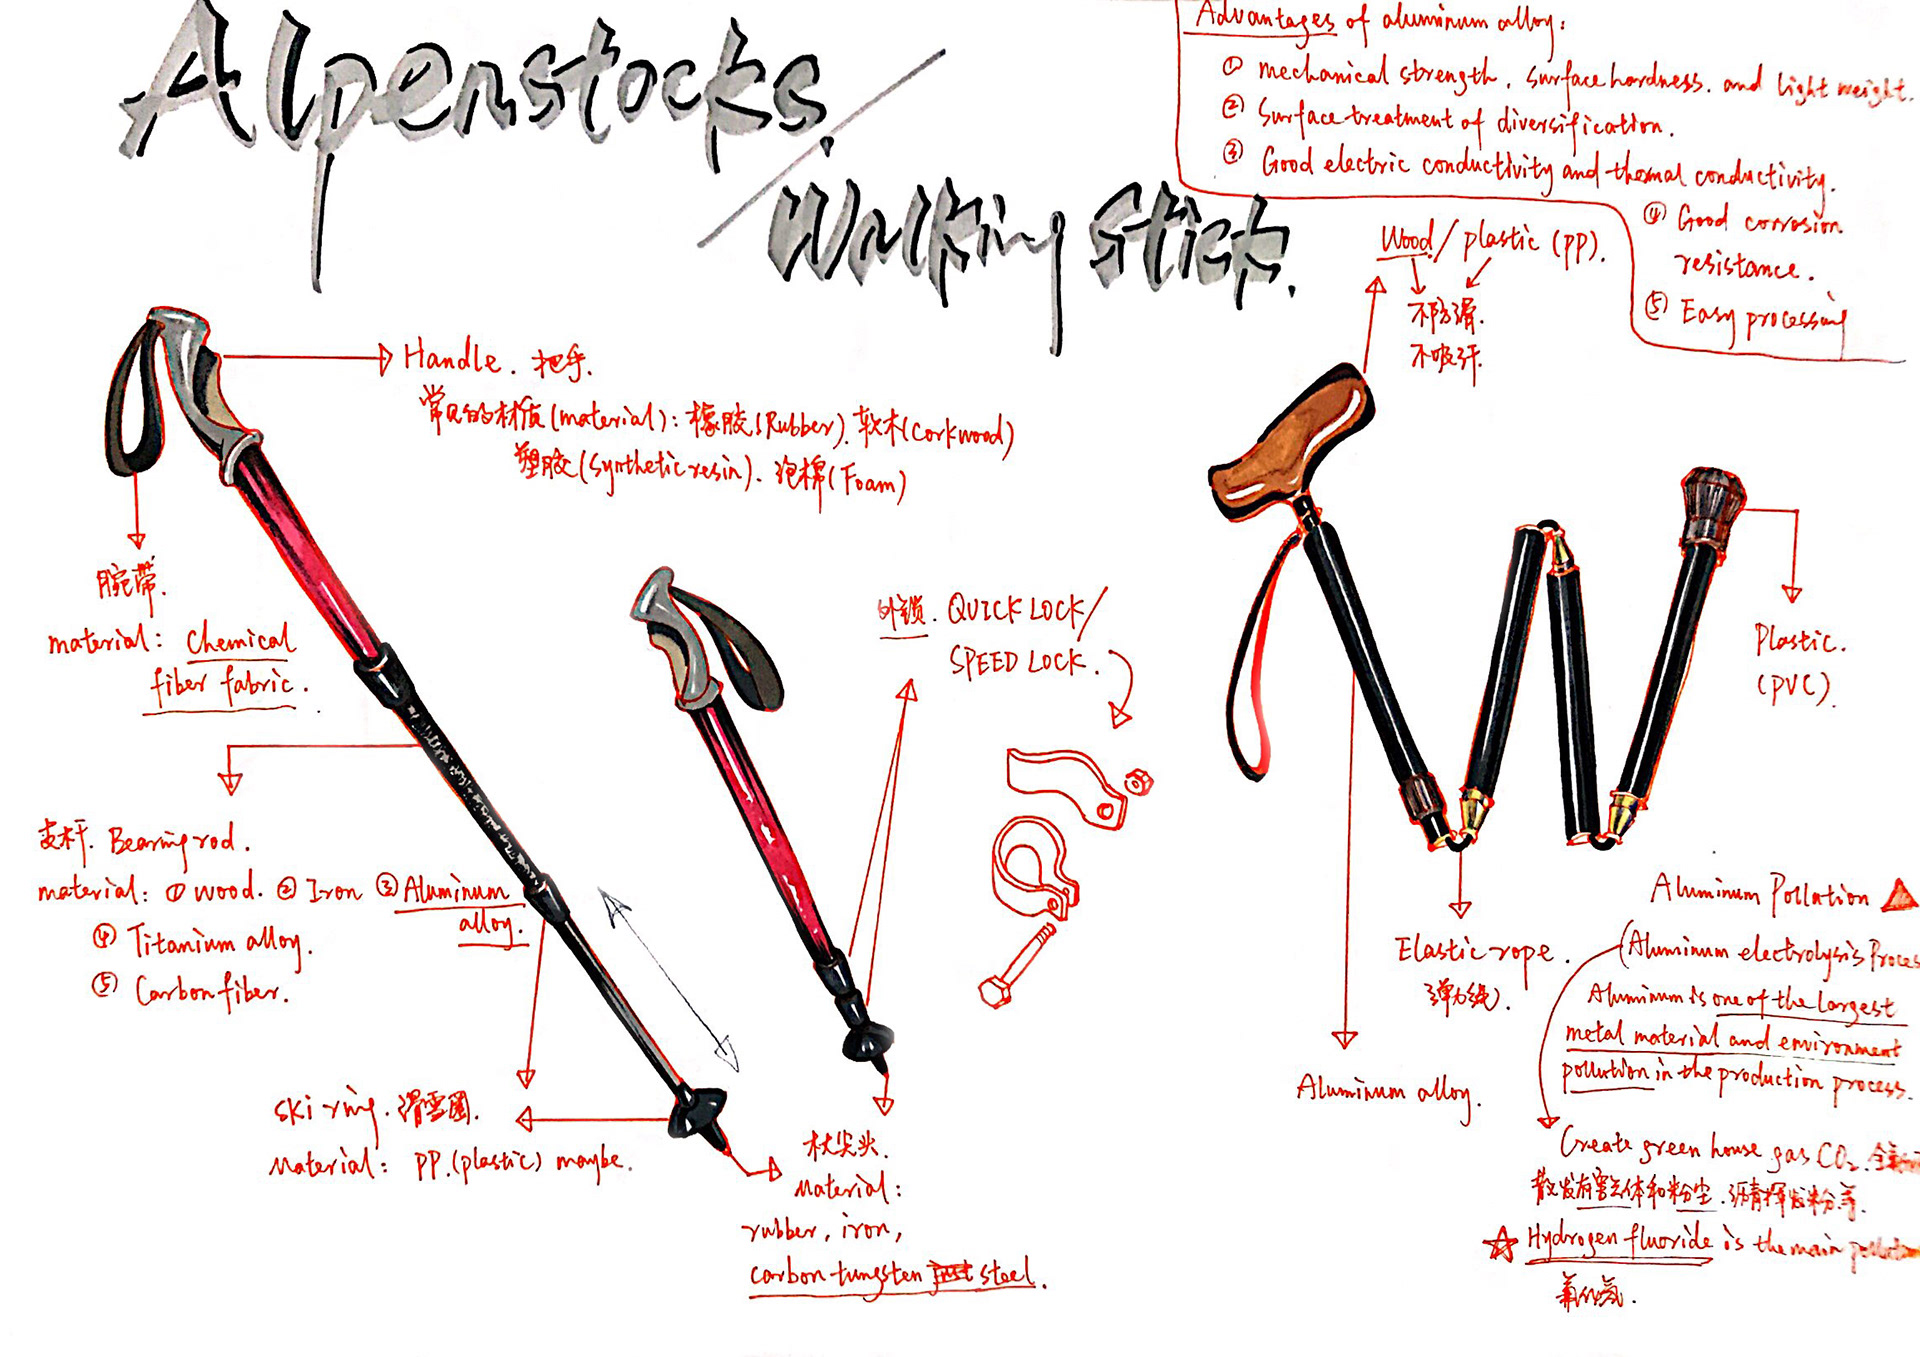 Alpenstocks.
Walking Stick.
Advantages of aluminum alloy:
① mechanical strength, surface hardness. and light weight.
② Surface treatment of diversification.
③ Good electric conductivity and thermal conductivity.
④ Good corrosion
resistance.
⑤ Easy processing
Wood/plastic (PP).
不防滑.
不吸汗.
Handle. 把手.
常见的材质(material): 橡胶(Rubber). 软木(Corkwood)
塑胶(Synthetic resin). 泡棉(Foam)
腕带.
material: Chemical
fiber fabric.
支杆. Bearing rod.
material: ① wood. ② Iron ③ Aluminum
alloy.
④ Titanium alloy.
⑤ Carbon fiber.
Ski ring. 滑雪圈.
Material: PP.(plastic) maybe.
杖尖头.
Material:
rubber, iron,
carbon tungsten steel.
外锁. QUICK LOCK/
SPEED LOCK.
Plastic.
(PVC).
Elastic rope.
弹力绳).
Aluminum alloy.
Aluminum Pollution
(Aluminum electrolysis Proces
Aluminum is one of the largest
metal material and environment
pollution in the production process.
Create green house gas CO₂.
散发有害气体和粉尘.沥青挥发粉等.
Hydrogen fluoride is the main pollution
氟化氢.